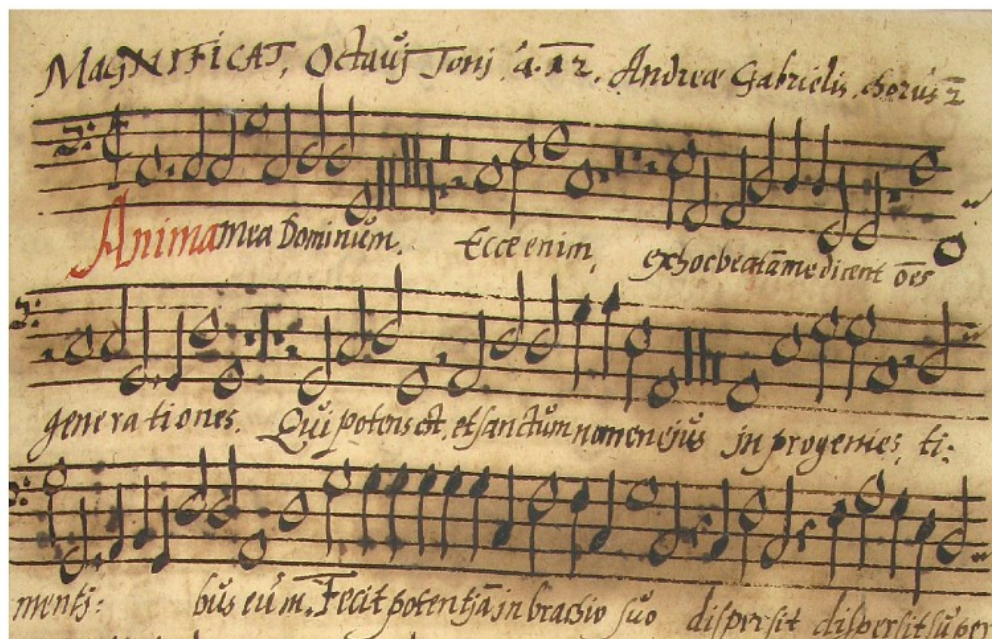 MAGNIFICAT, Octauj Tonj. á. 12. Andreæ Gabrielis. chorus 2
Anima mea Dominum. Ecce enim, ex hoc beatā me dicent oēs
generationes. Qui potens est, et sanctum nomen ejus in progenies, ti:
mentj: bus eum. Fecit potentjā in brachio suo dispersit dispersit super